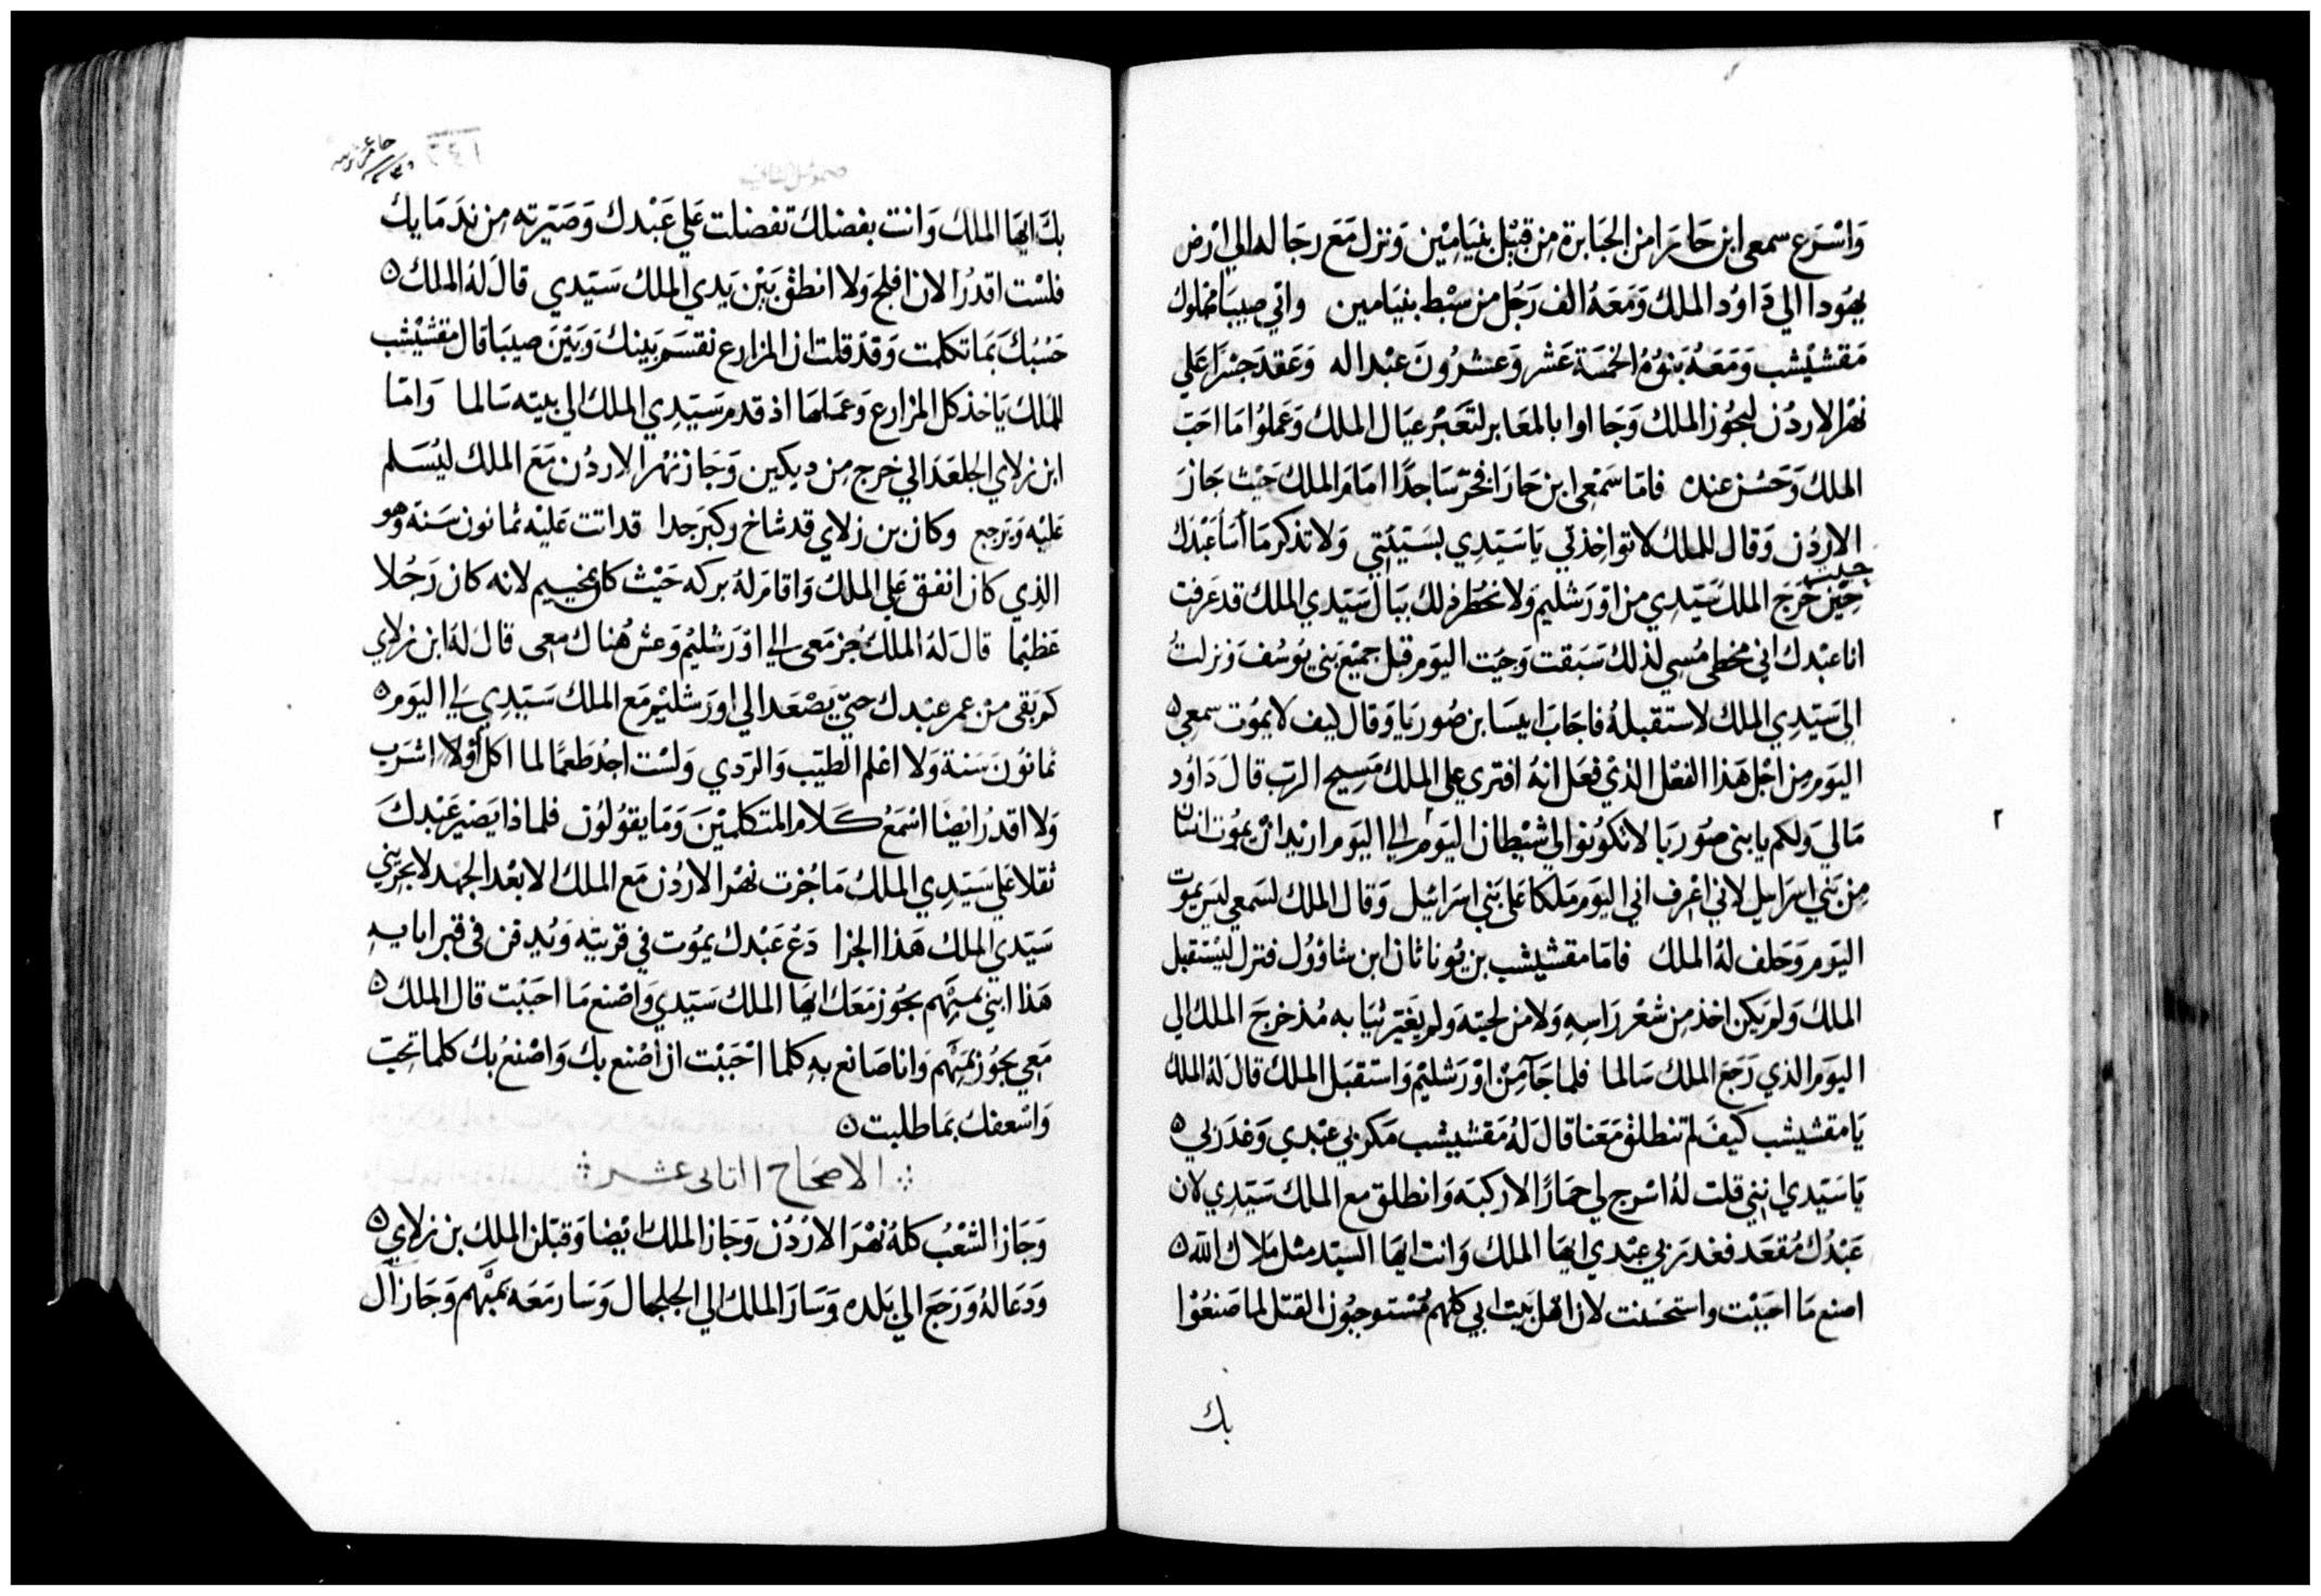 وَاسْرَع سمعى ابن حَارَا من الجبَابرة مِن قِبْل بنيَامِيْن وَنزل مَعَ رجَا له الي ارْض
يهُودا الي دَاوُد الملك وَمَعَهُ الف رَجُل من سبْط بنيَامين واتي صيبَا مملوك
مَقشيْشب وَمَعَهُ بَنوُهُ الخمْسَة عَشر وَعشرُونَ عبْدا له وَعَقدَ جسْرًا عَلي
نهْر الاردُن ليجُوز الملك وَجَا اوا بالمعَابر لتَعبُر عيَال الملك وَعَملوُا مَا احَبّ
الملك وَحَسُن عنده فامَا سَمْعي ابن حَارَا فخرّ سَاجدًا امَامَ الملك حَيْث جَاز
الاردُن وَقال للملك لا تواخِذني يَا سَيّدِي بسَيّئتي وَلا تذكر مَا أسَا عَبْدك
حِيْن خَرَج الملك سَيّدِي من اوْرَشليم وَلا تخطر ذلك ببَال سَيّدي الملك قد عَرفت
انا عبْدك اني مخطي مُسي لذلك سَبَقت وَجيت اليَوم قبْل جميْع بَني يوُسُف وَنزلتُ
الي سَيّدِي الملك لاستقبلهُ فاجَابَ ابيسَا بن صُوريَا وَقال كيف لا يموُت سمعي ٥
اليَوم مِن اجْل هَذا الفعْل الذي فعَل انهُ افتري علي الملك مَسِيح الرب قالَ دَاوُد
مَا لي وَلكم يا بني صوُريَا لا تكوُنوا لي شيْطانا اليَوم الي اليَوم اريْد انْ يموُت انسَان
مِن بَني اسرَاييل لاني اعْرف اني اليَوم مَلكا عَلي بَني اسرَائيل وَقال الملك لسَمعي ليسَ يموُت
اليَوم وَحَلف لهُ الملك فامّا مقشيْشب بن يُوناثان ابن شاوُول فنزل ليسْتقبل
الملك وَلم يَكن اخذ مِن شعْر رَاسِهِ وَلا من لحيته وَلم يغَيّر ثيَابه مُذ خرجَ الملك الي
اليَوم الذي رَجَعَ الملك سَالما فلما جَآ مِنْ اوْرَشليْم وَاستقبَل الملك قال لهُ الملك
يَا مقشيشب كيفَ لم تنطلقْ مَعَنا قال لهُ مَقشيشب مَكر بي عبْدي وَغدَر بي ٥
يَا سَيّدي انني قلت لهُ اسْرج لي حمَارًا لاركبَه وَانطلق مع الملك سَيّدِي لان
عَبْدُك مُقعَد فغدَر بي عبْدي ايهَا الملك وَانت ايهَا السيّد مثل مَلاك الله ٥
اصنع مَا احبَبْت واستحسَنت لان اهْل بَيْت ابي كلهم مُسْتوجبُون القتل لما صَنعُوْا
بك
بكَ ايهَا الملك وَانت بفضلك تفضلت عَلي عَبْدك وَصَيّرته مِن ندَمَايك
فلسْت اقدُر الان افلح وَلا انطقْ بَيْن يَدي الملك سَيّدي قالَ لهُ الملك ٥
حَسْبُكَ بمَا تكلمت وَقد قلت ان المزارع نقسَم بَينك وَبَيْنَ صيبَا قال مقشيْشب
للمَلك يَاخذ كل المزارع وَعَملهَا اذ قدم سَيّدِي الملك الي بيته سَالما وَامّا
ابن زلاي الجلعَداني خرج مِن ديكين وَجَاز نهْر الاردُن مَعَ الملك ليُسَلم
عَليْه وَيَرجع وكان بن زلاي قد شاخ وكبر جدا قد اتت عَليْه ثمانون سَنة وَهو
الذِي كان انفق عَلي الملك وَاقامَ لهُ بركه حَيْث كان مخييم لانه كان رَجُلا
عَظيْما قالَ لهُ الملك جُز مَعى الي اوْرَشليْم وَعش هُناك معى قالَ لهُ ابن زلاي
كم بَقى من عمر عبْدك حتيّ يَصْعَد الي اورَشليْم مَع الملك سَيّدِي لي اليَوم ٥
ثمانوُنَ سَنة وَلا اعْلم الطيّب وَالرّدي وَلسْت اجُد طَعمًا لما اكل أوْلا اشرَب
وَلا اقدرُ ايضًا اسْمَعُ كَلام المتكلميْنَ وَمَا يقوُلوُن فلماذا يَصيْر عَبْدكَ
ثقلا عَلي سَيّدِي الملك مَا جُزت نهْر الاردُن مَع الملك الا بعْد الجهد لا يجزيني
سَيّدي الملك هَذا الجزا دَعْ عَبْدك يموُت في قرْيته وَيُدفن فى قبر ابايهِ
هَذا ابني بميَهم يجُوز مَعَك ايهَا الملك سَيّدي وَاصْنع مَا احبَبْت قال الملك ٥
مَعِي يجُوز بمَيَهم وَانا صَانع بهِ كلما احْبَبْت ان اصْنع بك وَاصْنعُ بك كلما تحِبّ
وَاسْعفك بمَا طلبت ٥
الاصحَاح الثانى عشر
وَجَاز الشعْبُ كلهُ نهْرَ الارْدُن وَجَاز الملك ايْضا وَقبّلن الملك بن زلاي ٥
وَدَعَا لهُ وَرَجَع الي بَلده وَسَارَ الملك الي الجلجَال وَسَار مَعَه بميَهم وَجَاز آل